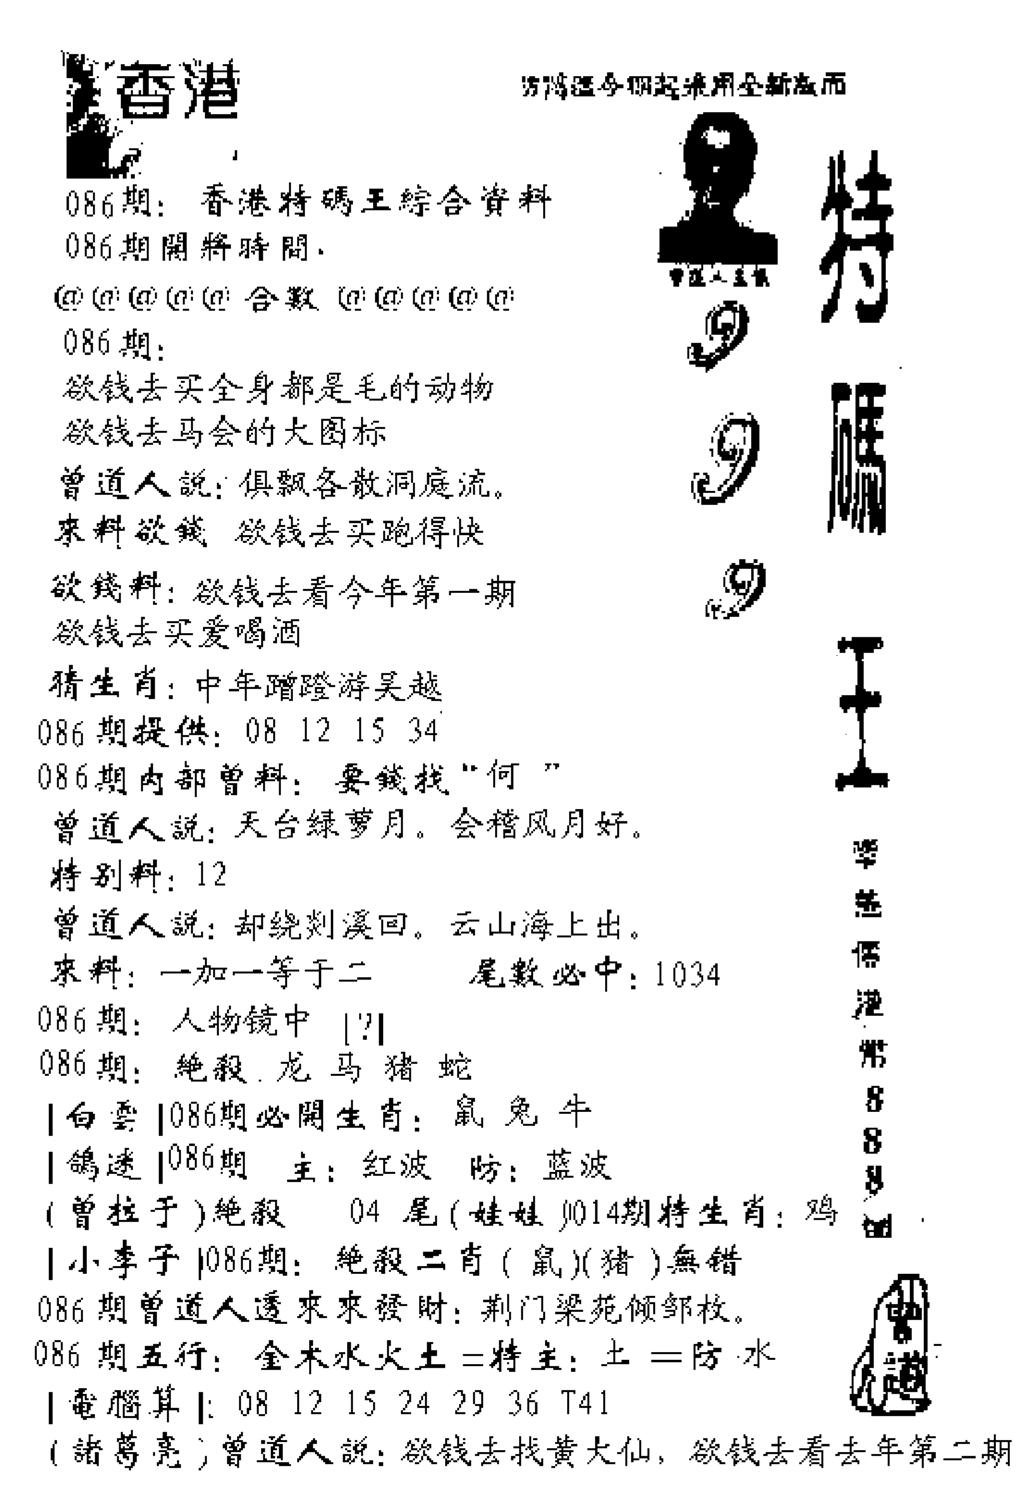 香港
086期：香港特碼王綜合資料
086期開將時間.
@@@@@合數@@@@@
086期：
欲钱去买全身都是毛的动物
欲钱去马会的大图标
曾道人説：俱飘各散洞庭流。
來料欲錢 欲钱去买跑得快
欲錢料：欲钱去看今年第一期
欲钱去买爱喝酒
猜生肖：中年蹭蹬游吴越
086期提供：08 12 15 34
086期内部曾料：要錢找“何 ”
曾道人説：天台绿萝月。会稽风月好。
特别料：12
曾道人説：却绕剡溪回。云山海上出。
來料：一加一等于二 尾數必中：1034
086期：人物镜中 |?|
086期：絶殺.龙 马 猪 蛇
|白雲|086期必開生肖：鼠 兔 牛
|鴿迷|086期 主：红波 防：蓝波
(曾拉于)絶殺 04 尾(娃娃)014期特生肖：鸡
|小李子|086期：絶殺二肖(鼠)(猪)無错
086期曾道人透來來發財：荆门梁苑倾邹枚。
086 期五行：金木水火土=特主：土 =防 水
|電腦算|: 08 12 15 24 29 36 T41
(諸葛亮)曾道人説：欲钱去找黄大仙，欲钱去看去年第二期
特碼王
999
港幣888
曾道